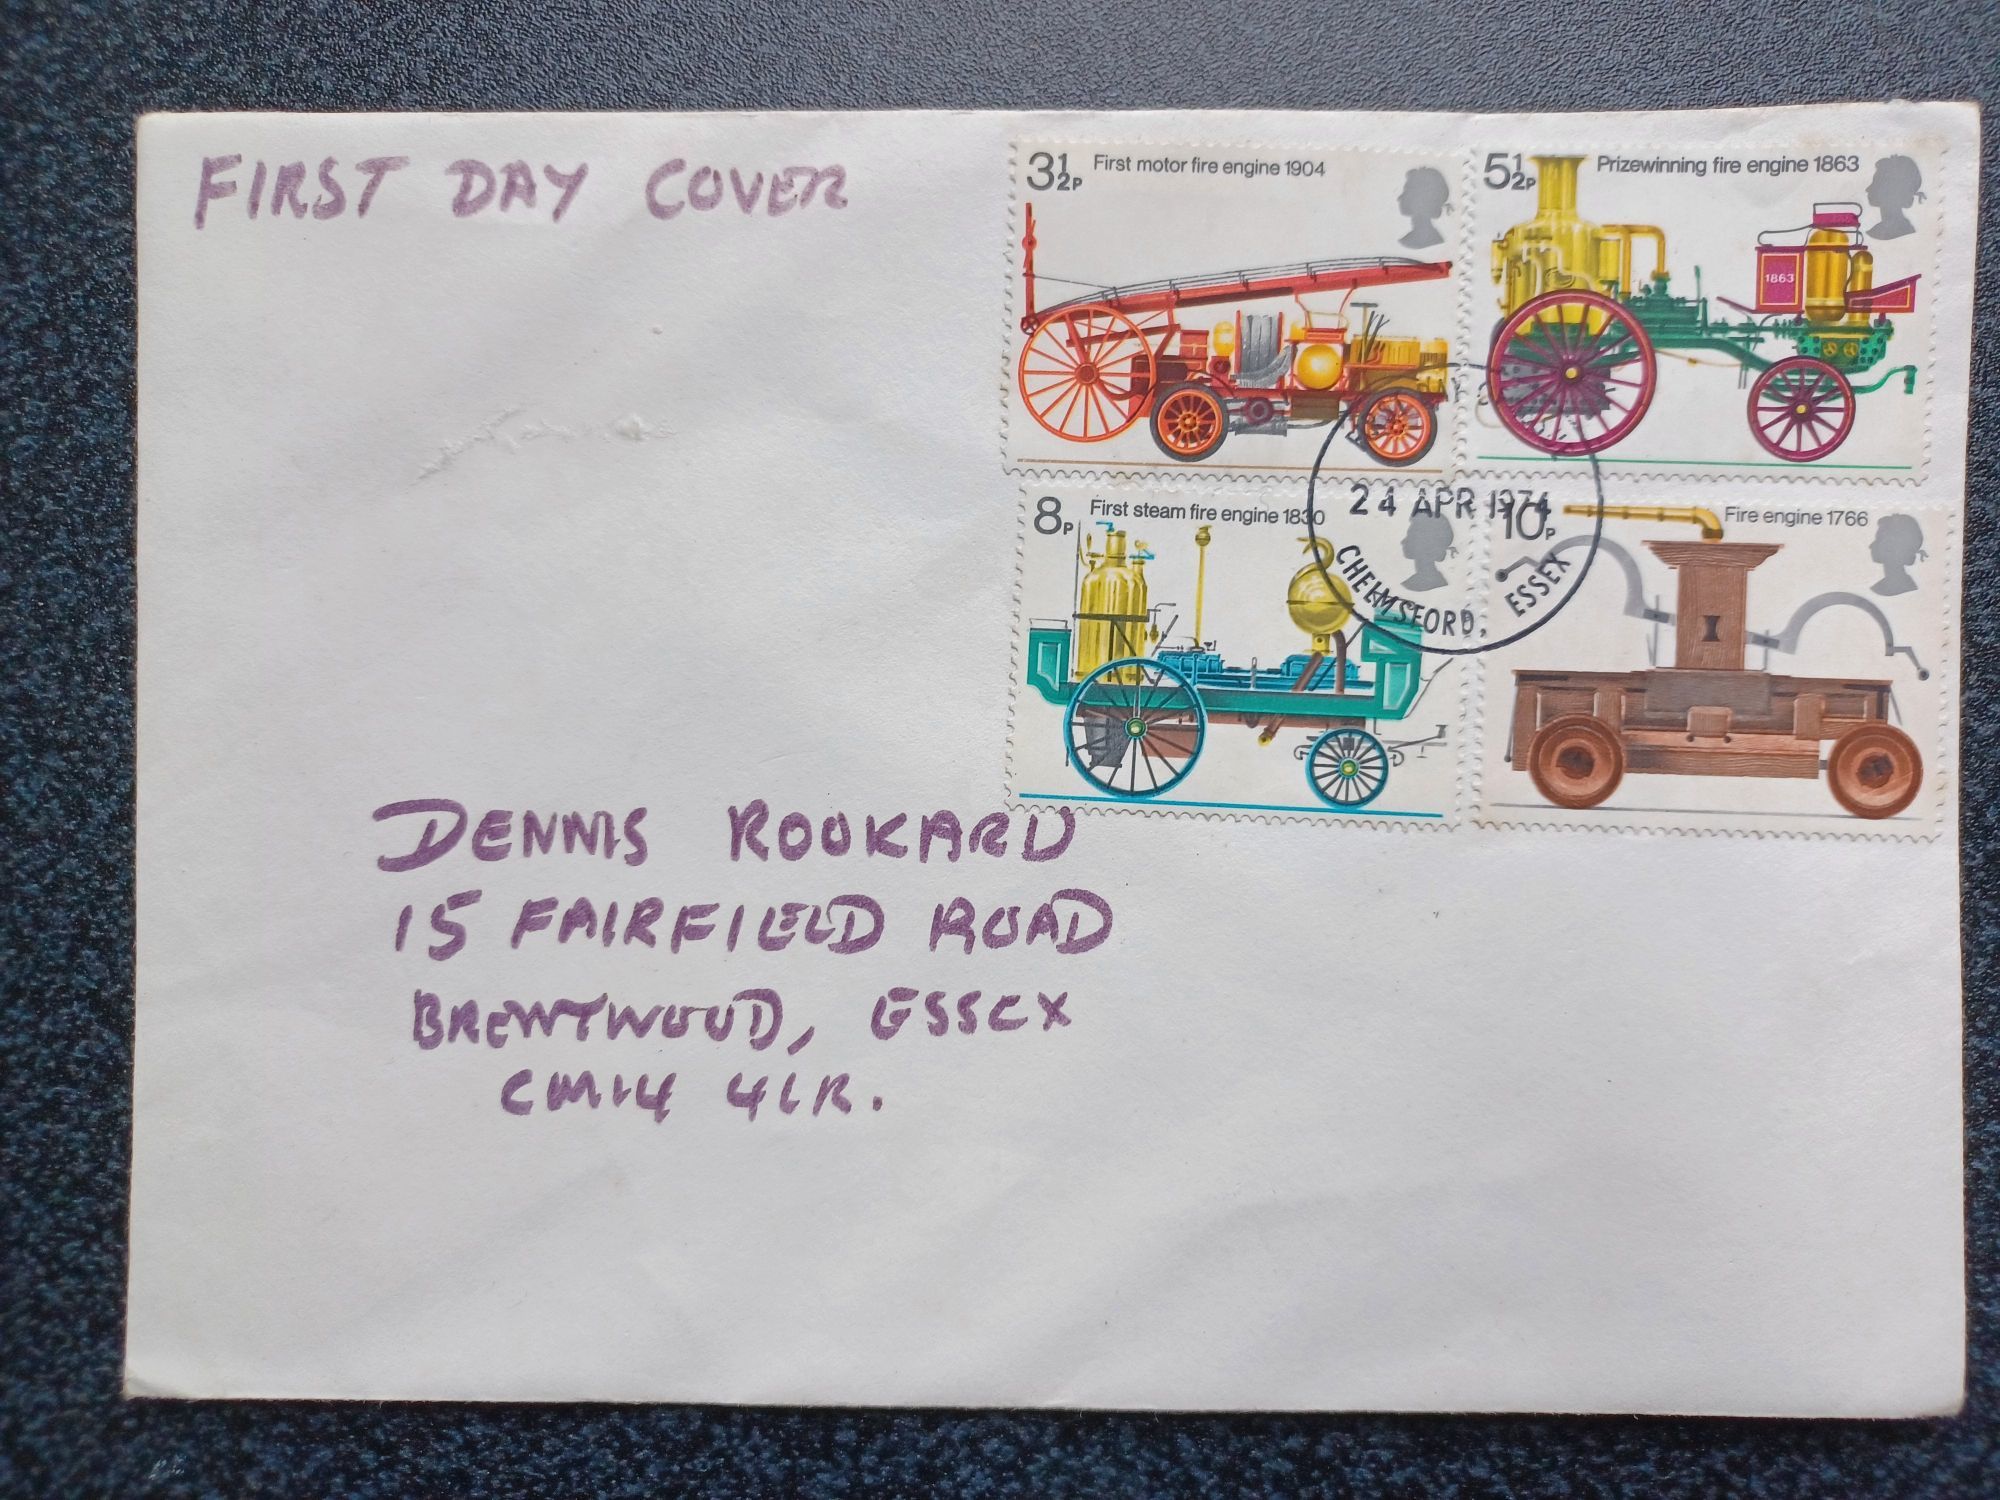 FIRST DAY COVER
3½P First motor fire engine 1904
5½P Prizewinning fire engine 1863
1863
8P First steam fire engine 1830
10P Fire engine 1766
24 APR 1974
CHELMSFORD, ESSEX
DENNIS ROOKARD
15 FAIRFIELD ROAD
BRENTWOOD, ESSEX
CM14 4LR.